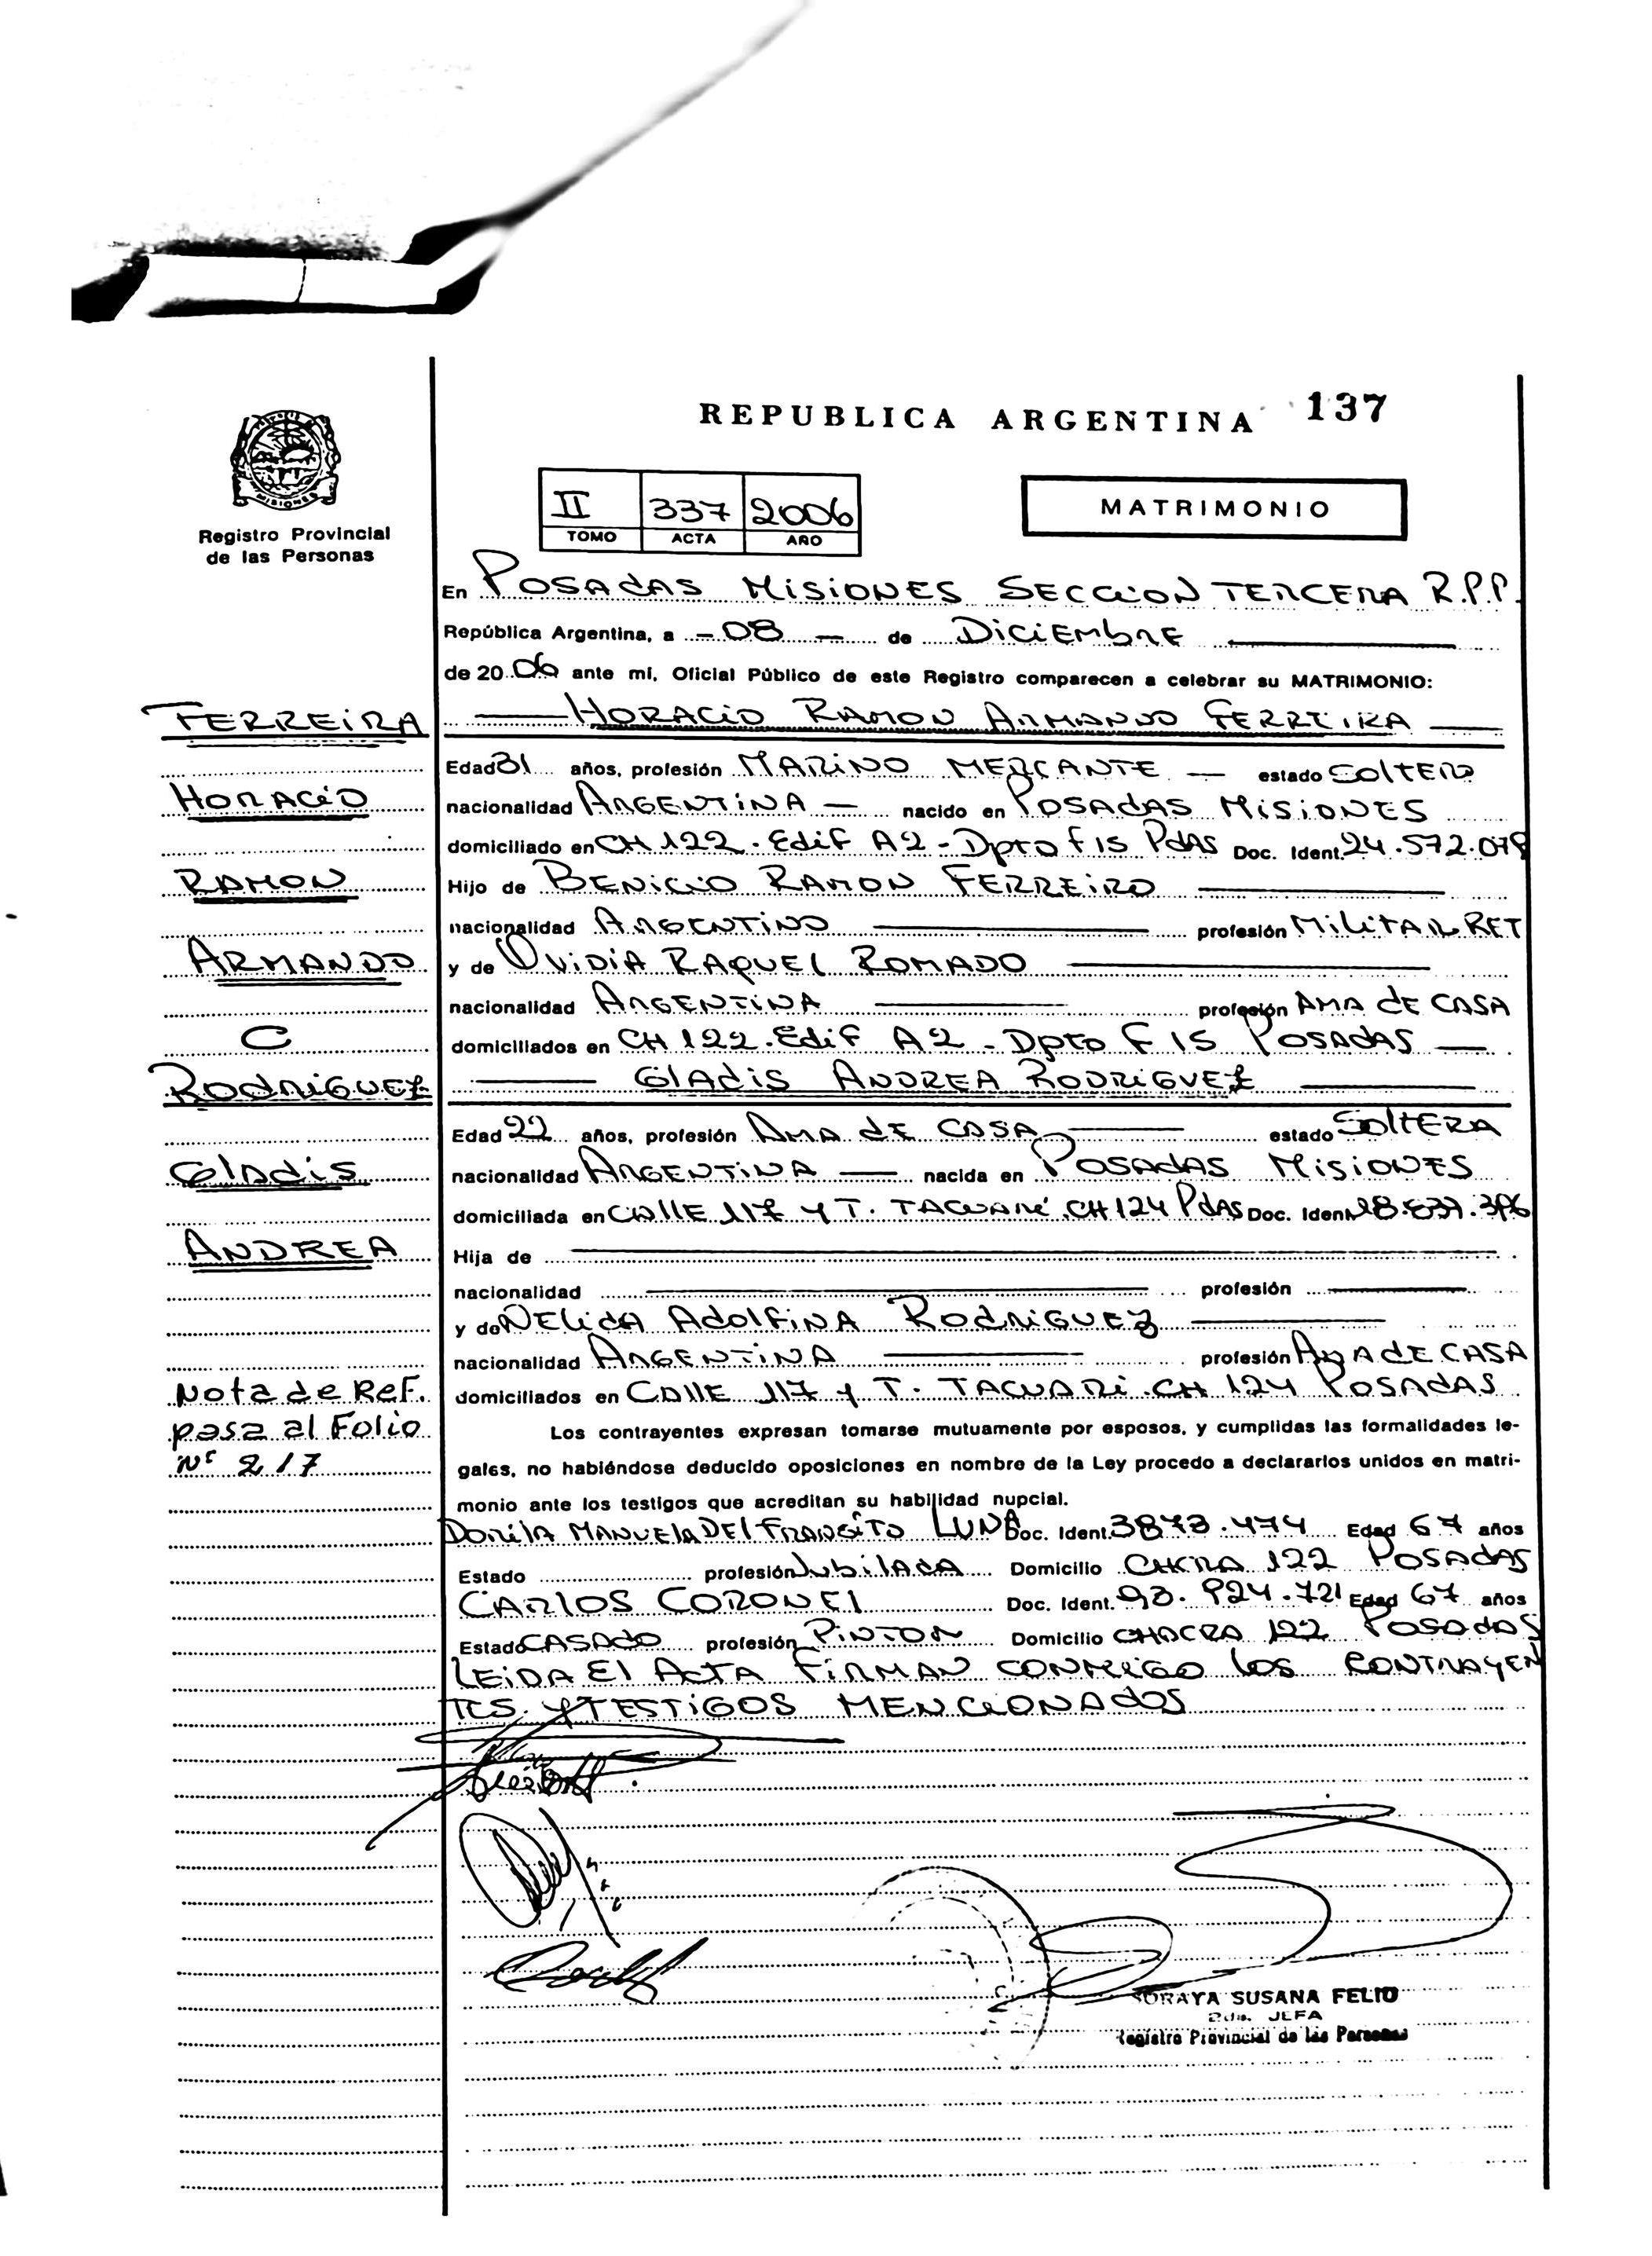 REPUBLICA ARGENTINA 137
MISIONES
Registro Provincial
de las Personas
II 337 2006
TOMO ACTA AÑO
MATRIMONIO
En POSADAS MISIONES SECCION TERCERA R.P.P.
República Argentina, a - 08 - de DICIEMBRE
de 2006 ante mi, Oficial Público de este Registro comparecen a celebrar su MATRIMONIO:
FERREIRA
HORACIO
RAMON
ARMANDO
C
RODRIGUEZ
GLADIS
ANDREA
Nota de Ref.
pasa al Folio
Nº 217
HORACIO RAMON ARMANDO FERREIRA
Edad 31 años, profesión MARINO MERCANTE - estado SOLTERO
nacionalidad ARGENTINA - nacido en POSADAS MISIONES
domiciliado en CH 122. Edif A2 - Dpto F15 PdAS Doc. Ident. 24.572.078
Hijo de BENICIO RAMON FERREIRO
nacionalidad ARGENTINO profesión MILITAR RET
y de OVIDIA RAQUEL ROMADO
nacionalidad ARGENTINA profesión AMA DE CASA
domiciliados en CH 122. Edif A2 - Dpto F 15 POSADAS
GLADIS ANDREA RODRIGUEZ
Edad 22 años, profesión AMA DE CASA estado SOLTERA
nacionalidad ARGENTINA nacida en POSADAS MISIONES
domiciliada en CALLE 117 Y T. TACUARI. CH 124 PdAS Doc. Ident.
Hija de
nacionalidad profesión
y de NELIDA ADOLFINA RODRIGUEZ
nacionalidad ARGENTINA profesión AMA DE CASA
domiciliados en CALLE 117 Y T. TACUARI. CH 124 POSADAS
Los contrayentes expresan tomarse mutuamente por esposos, y cumplidas las formalidades le-
gales, no habiéndose deducido oposiciones en nombre de la Ley procedo a declararlos unidos en matri-
monio ante los testigos que acreditan su habilidad nupcial.
DORILA MANUELA DEL TRANSITO LUNA Doc. Ident. 3873.474 Edad 67 años
Estado profesión JUBILADA Domicilio CHCRA 122 POSADAS
CARLOS CORONEL Doc. Ident. 93.924.721 Edad 67 años
Estado CASADO profesión PINTOR Domicilio CHACRA 122 POSADAS
LEIDA EL ACTA FIRMAN CONMIGO LOS CONTRAYEN
TES Y TESTIGOS MENCIONADOS
SORAYA SUSANA FELIO
2da. JEFA
Registro Provincial de las Personas